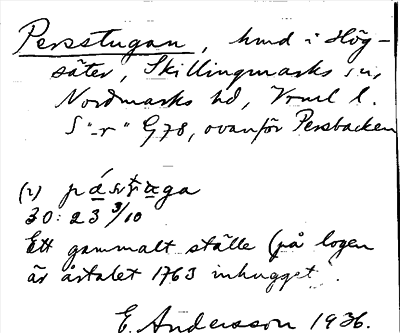 Persstugan, hmd i Hög-
säter, Skillingmarks sn,
Nordmarks hd, Vrml l.
S"-r" G78, ovanför Persbacken
(r)
30: 23 3/10
Ett gammalt ställe (på logen
är årtalet 1763 inhugget.
E. Andersson 1936.